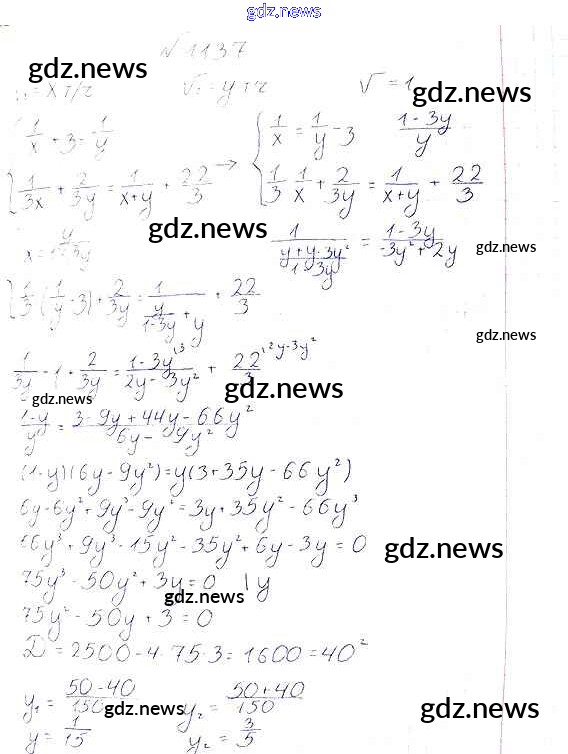 gdz.news
№1137
gdz.news
√ = 1
gdz.news
1/x + 3 = 1/y
{ 1/x = 1/y - 3    (1-3y)/y
{ 1/(3x) + 2/(3y) = 1/(x+y) + 22/3 → { 1/3 · 1/x + 2/(3y) = 1/(x+y) + 22/3
gdz.news
1/((y+y-3y²)/(1-3y)) = (1-3y)/(-3y²+2y)
gdz.news
{ 1/3 (1/y - 3) + 2/(3y) = 1/(y/(1-3y) + y) + 22/3
gdz.news
1/(3y) - 1 + 2/(3y) = (1-3y)/(2y-3y²) + 22/3
gdz.news
gdz.news
(1-y)/y = (3-9y+44y-66y²)/(6y-9y²)
(1-y)(6y-9y²)=y(3+35y-66y²)
6y-6y²+9y³-9y²=3y+35y²-66y³
66y³+9y³-15y²-35y²+6y-3y=0
gdz.news
75y³-50y²+3y=0 | y
gdz.news
75y²-50y+3=0
D=2500-4·75·3=1600=40²
y₁ = (50-40)/150    y₂ = (50+40)/150
gdz.news
gdz.news
y = 1/15    y₂ = 3/5